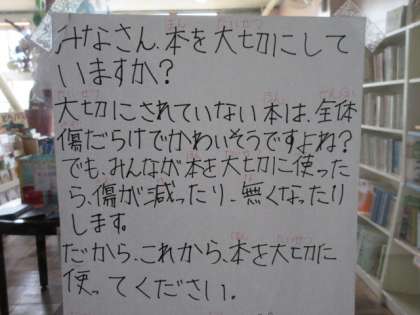 みなさん、本を大切にして
いますか？
大切にされていない本は、全体
傷だらけでかわいそうですよね？
でも、みんなが本を大切に使った
ら、傷が減ったり、無くなったり
します。
だから、これから、本を大切に
使ってください。